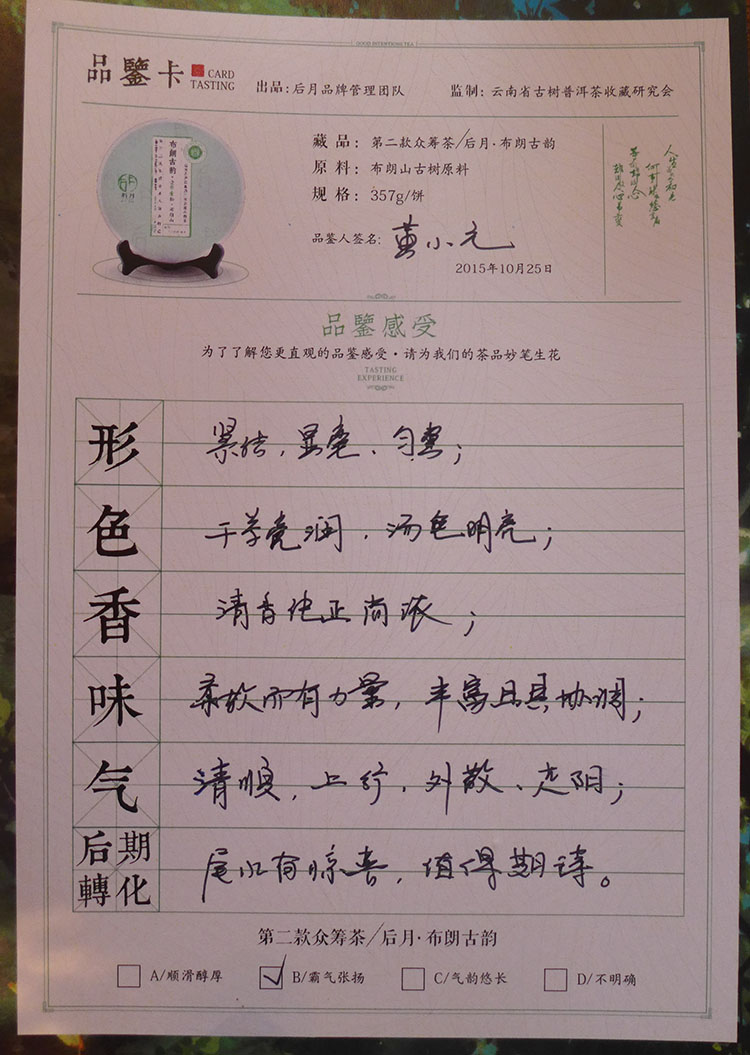 GOOD INTENTIONS TEA
品鑒卡 CARD TASTING
出品:后月品牌管理团队
监制:云南省古树普洱茶收藏研究会
布朗古韵
后月
藏品:第二款众筹茶/后月·布朗古韵
原料:布朗山古树原料
规格:357g/饼
品鉴人签名:黄小元
2015年10月25日
品鑒感受
为了了解您更直观的品鉴感受·请为我们的茶品妙笔生花
TASTING
EXPERIENCE
形 紧结,显毫、匀整;
色 干茶亮润,汤色明亮;
香 清香纯正尚浓;
味 柔软而有力量,丰富且具协调;
气 清顺,上行,外散、走阳;
后期轉化 尾水有惊喜,值得期待。
第二款众筹茶/后月·布朗古韵
A/顺滑醇厚
B/霸气张扬
C/气韵悠长
D/不明确